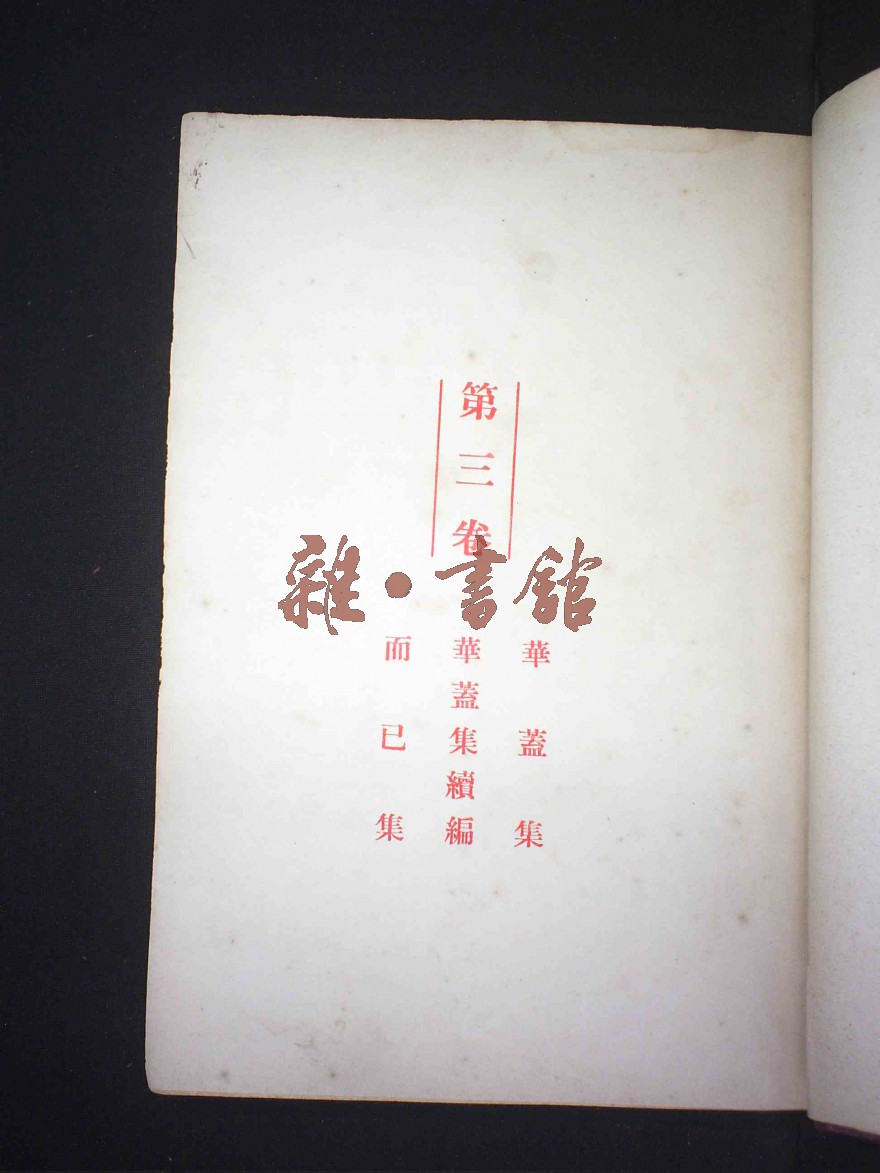 第三卷
華蓋集
華蓋集續編
而已集
雜·書館